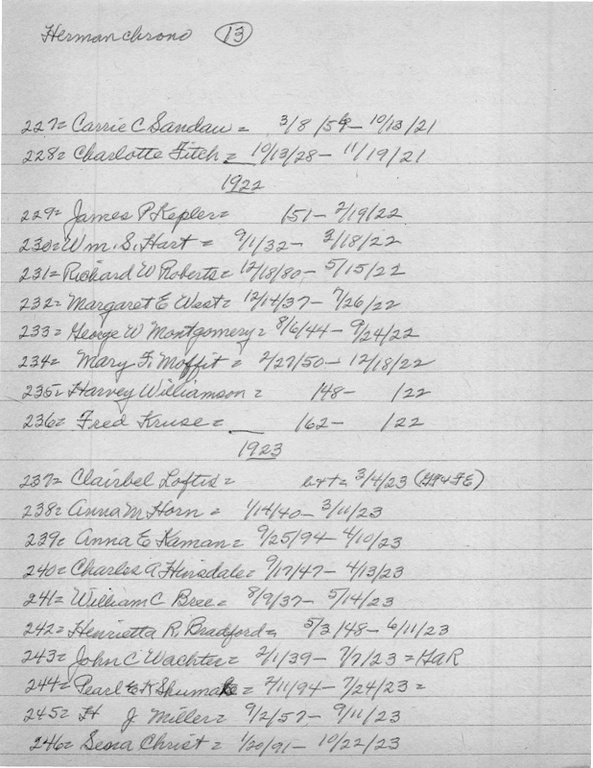 Herman chrono 13
227= Carrie C Sandau = 3/8/56 - 10/13/21
228= Charlotte Fitch = 10/13/28 - 11/19/21
1922
229= James P Kepler = /51 - 2/19/22
230= Wm. S. Hart = 9/1/32 - 3/18/22
231= Richard W Roberts = 12/18/80 - 5/15/22
232= Margaret E West = 12/14/37 - 7/26/22
233= George W Montgomery = 8/6/44 - 9/24/22
234= Mary F. Moffit = 2/27/50 - 12/18/22
235= Harvey Williamson = /48 - /22
236= Fred Kruse = /62 - /22
1923
237= Clairbel Loftis = b+d= 3/4/23
238= Anna M Horn = 1/14/40 - 3/11/23
239= Anna E Kaman = 9/25/94 - 4/10/23
240= Charles A Hinsdale = 9/17/47 - 4/13/23
241= William C Bree = 8/9/37 - 5/14/23
242= Henrietta R. Bradford = 5/3/48 - 6/11/23
243= John C Wachter = 2/1/39 - 7/7/23 = GAR
244= Pearl K Shumake = 2/11/94 - 7/24/23 =
245= H J Miller = 9/2/57 - 9/11/23
246= Sena Christ = 1/20/91 - 10/22/23